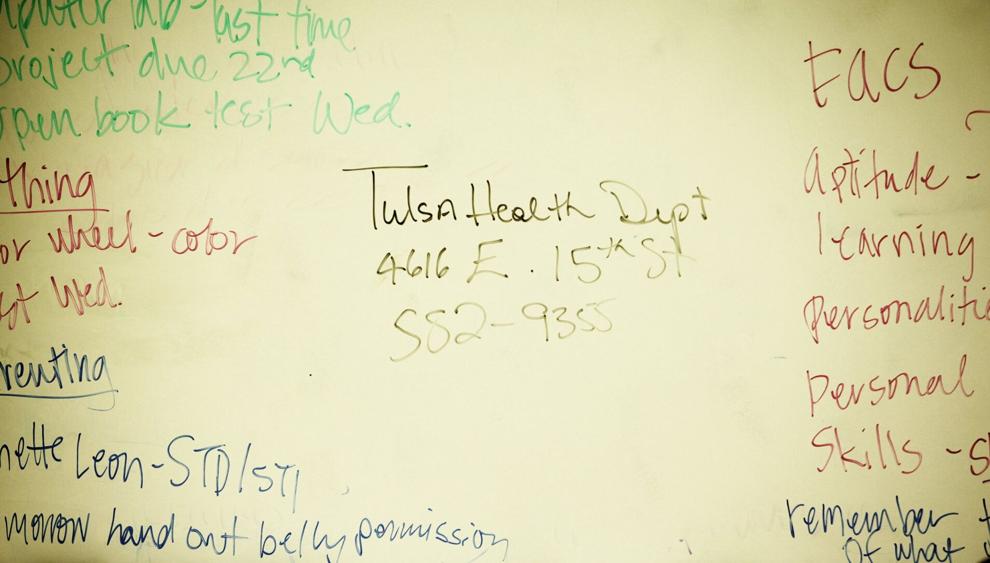 mputer lab - last time
project due 22nd
open book test Wed.
thing
or wheel - color
st Wed.
renting
nette Leon - STD/STI
morrow hand out belly permission
Tulsa Health Dept
4616 E. 15th St
582-9355
FACS
Aptitude -
learning
Personalitie
Personal
Skills - s
remember t
of what